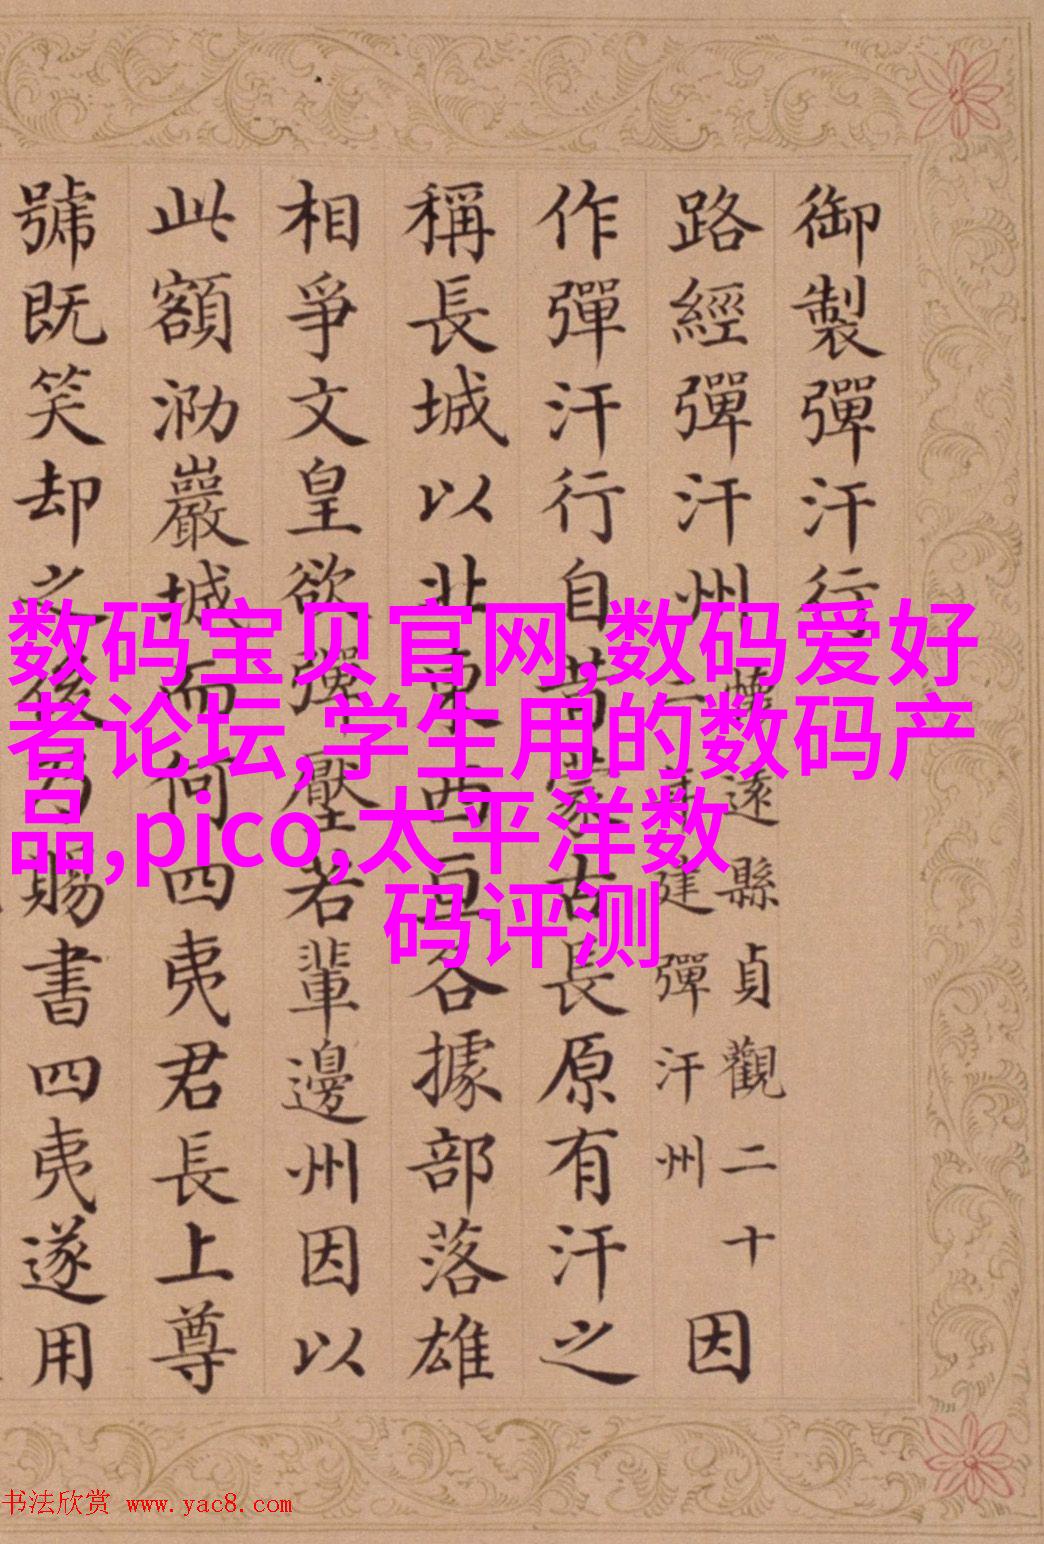 御製彈汗行
路經彈汗州
懷遠縣貞觀二十
二年建彈汗州
因
作彈汗行自昔蒙古長原有汗之
稱長城以北東西亘各據部落雄
相爭文皇欲强壓若輩邊州因以
此額泐巖城而何四夷君長上尊
號既笑却之後乃賜書四夷遂用
数码宝贝官网,数码爱好
者论坛,学生用的数码产
品,pico,太平洋数
码评测
书法欣赏 www.yac8.com